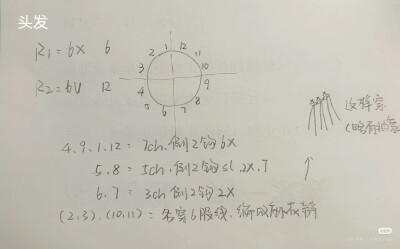 头发
R1 = 6X 6
R2 = 6V 12
2 1 12 11
3 10
4 9
5 6 7 8
4.9.1.12 = 7ch.倒2钩6X
5.8 = 5ch.倒2钩sl.2X.T
6.7 = 3ch 倒2钩2X
(2.3).(10.11) = 各穿6股线.编成麻花辫
这样穿